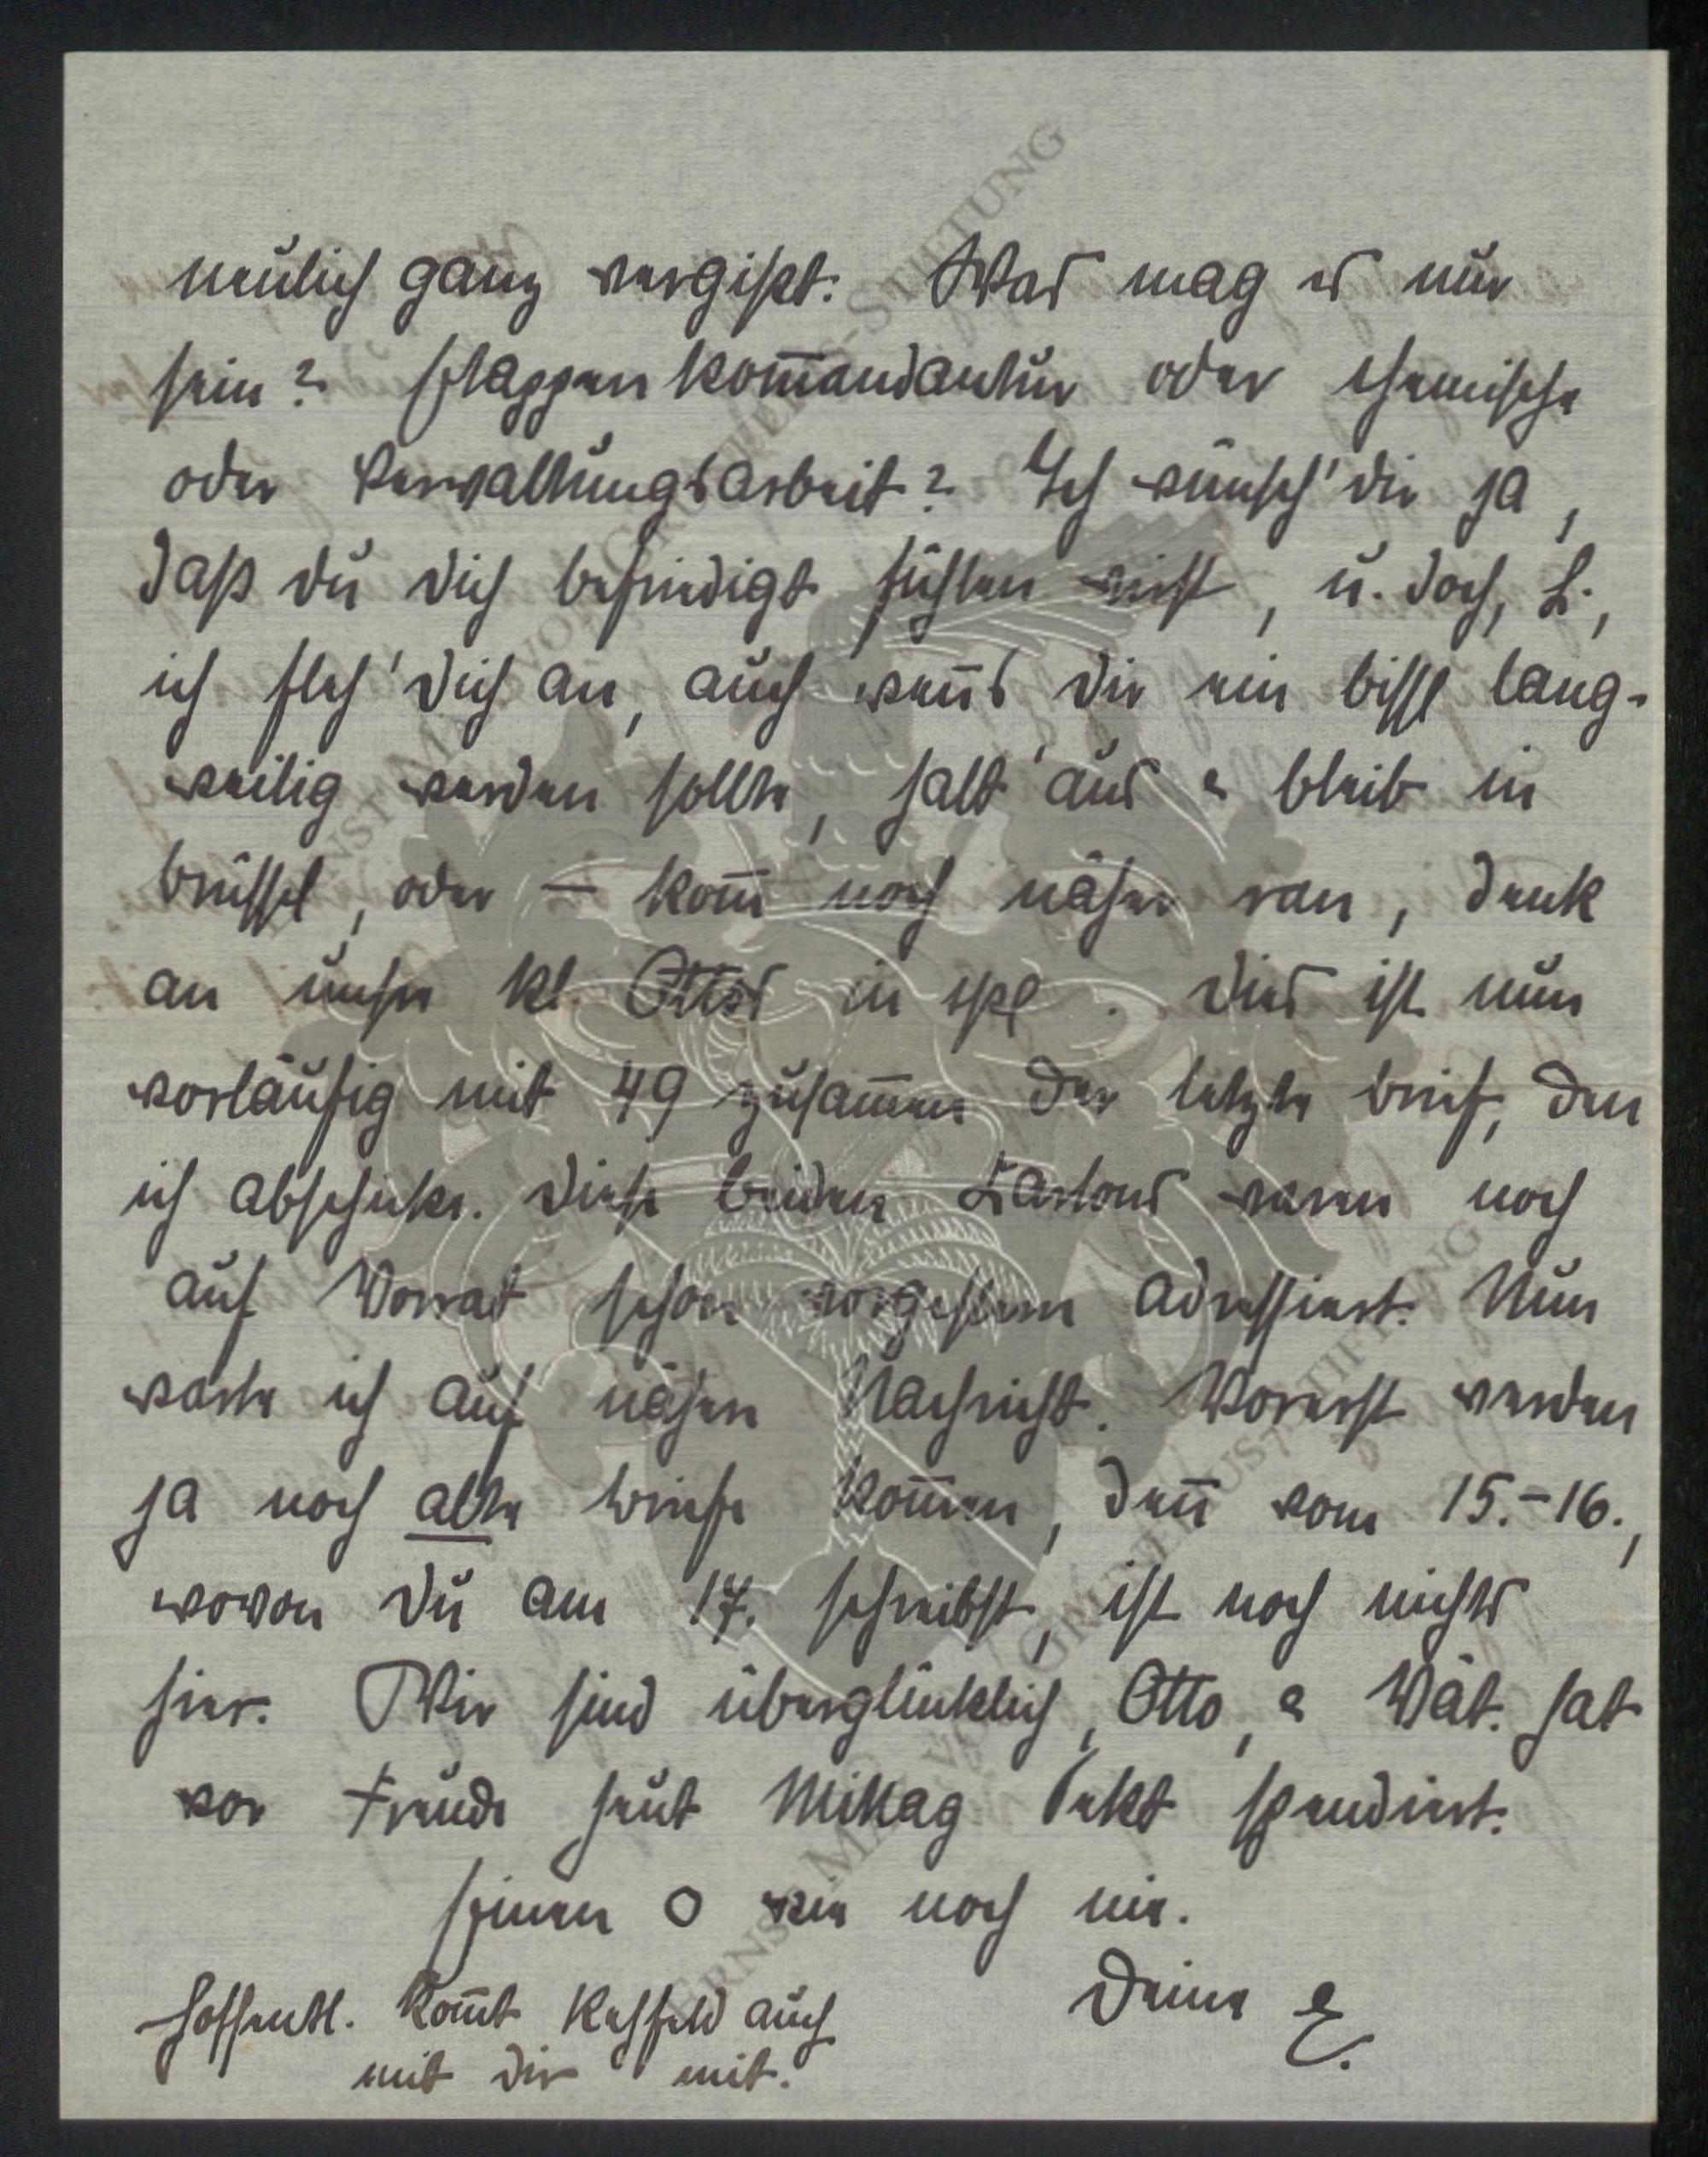 neulich ganz vergißt. Was mag es nur
sein? Etappenkom̅andantur oder chemische
oder Verwaltungsarbeit? Ich wünsch' dir ja,
daß du dich befriedigt fühlen wirst, u. doch, L.,
ich fleh' dich an, auch wen̅s dir ein bissl lang-
weilig werden sollte, halt' aus & bleib in
Brüssel, oder – kom̅ noch näher ran, denk
an unsre kl. Ottos in spe. Dies ist nun
vorläufig mit 49 zusam̅en der letzte Brief, den
ich abschicke. Diese beiden Kartons waren noch
auf Vorrat schon vorgestern adressiert. Nun
warte ich auf nähere Nachricht. Vorerst werden
ja noch alte Briefe kom̅en, den̅ vom 15.–16.,
wovon du am 17. schreibst, ist noch nichts
hier. Wir sind überglücklich, Otto, & Vat. hat
vor Freude heut Mittag Sekt spendiert.
Einen O wie noch nie.
Deine E.
Hoffentl. kom̅t Rehfeld auch
mit dir mit.
ERNST MAX VON GRUNELIUS-STIFTUNG
ERNST MAX VON GRUNELIUS-STIFTUNG